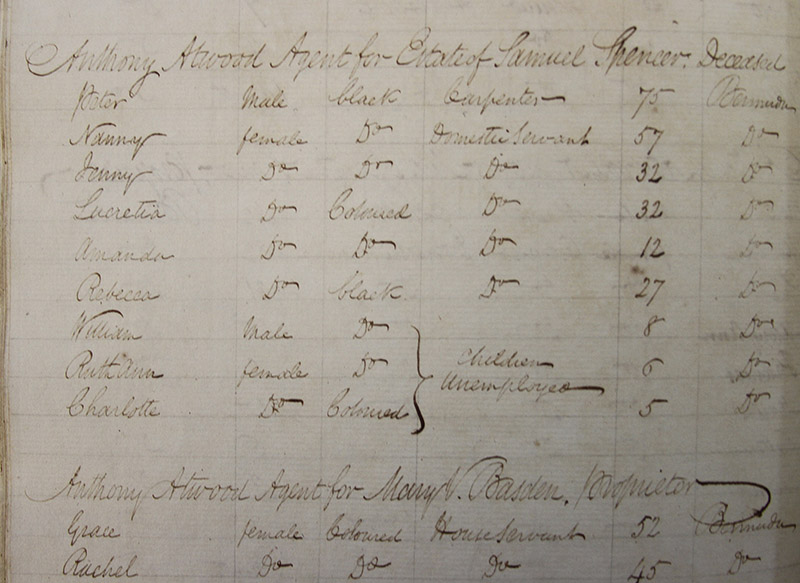 Anthony Atwood Agent for Estate of Samuel Spencer. Deceased
Peter Male black Carpenter 75 Bermuda
Nanny female Do Domestic Servant 57 Do
Jenny Do Do Do 32 Do
Lucretia Do Coloured Do 32 Do
Amanda Do Do Do 12 Do
Rebecca Do black Do 27 Do
William Male Do 8 Do
Ruth Ann female Do Children Unemployed 6 Do
Charlotte Do Coloured 5 Do
Anthony Atwood Agent for Mary V. Basden, Proprietor
Grace female Coloured House Servant 52 Bermuda
Rachel Do Do Do 45 Do